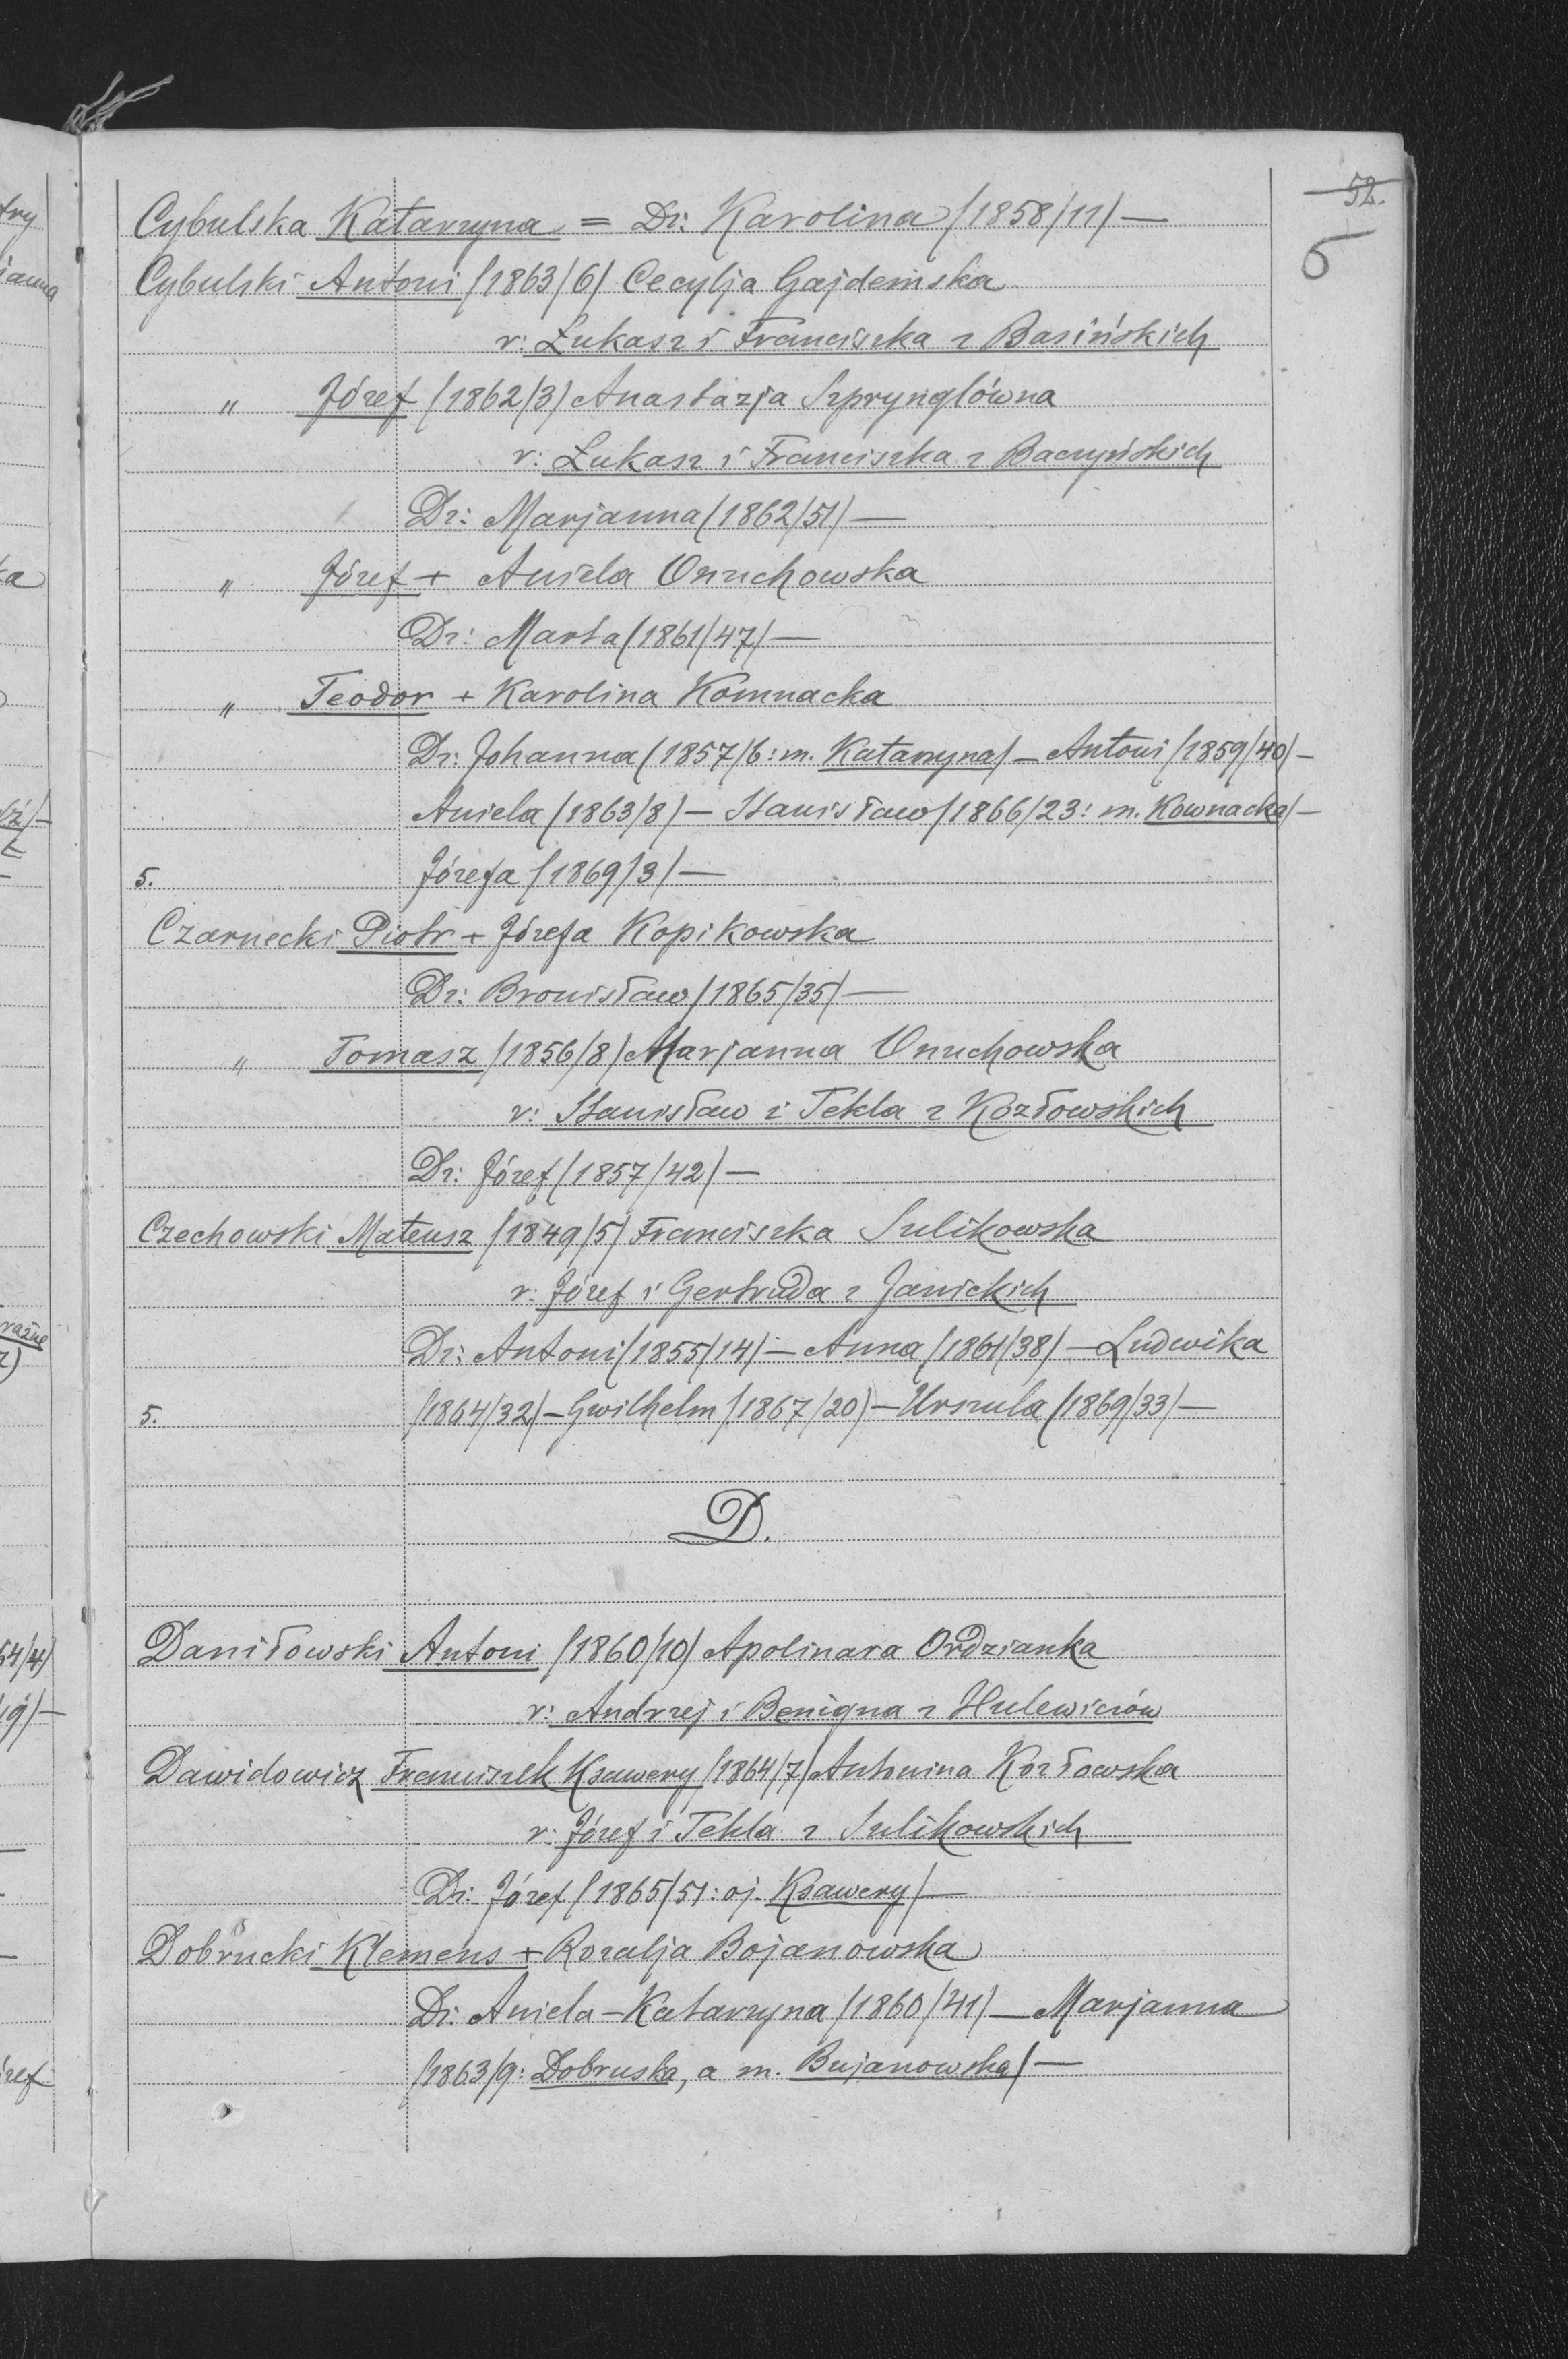 52.
5
Cybulska Katarzyna = Dz: Karolina (1858/11) —
Cybulski Antoni (1863/6) Cecylja
r: Łukasz i Franciszka z Basińskich
" Józef (1862/3) Anastazja Szprynglówna
r: Łukasz i Franciszka z Baczyńskich
Dz: Marjanna (1862/51) —
" Józef + Aniela Onuchowska
Dz: Marta (1861/47) —
" Teodor + Karolina Komnacka
Dz: Johanna (1857/6: m. Katarzyna) — Antoni (1859/40) —
Aniela (1863/8) — Stanisław (1866/23: m. Kownacka) —
5. Józefa (1869/3) —
Czarnecki Piotr + Józefa Kopikowska
Dz: Bronisław (1865/35) —
" Tomasz (1856/8) Marjanna Onuchowska
r: Stanisław i Tekla z Kozłowskich
Dz: Józef (1857/42) —
Czechowski Mateusz (1849/5) Franciszka Sulikowska
r: Józef i Gertruda z Janickich
Dz: Antoni (1855/14) — Anna (1861/38) — Ludwika
5. (1864/32) — Gwilhelm (1867/20) — Urszula (1869/33) —
D.
Daniłowski Antoni (1860/10) Apolinara Ordzianka
r: Andrzej i Benigna z Hulewiczów
Dawidowicz Franciszek Ksawery (1864/7) Antonina Kozłowska
r: Józef i Tekla z Sulikowskich
Dz: Józef (1865/51: oj. Ksawery) —
Dobrucki Klemens + Rozalja Bojanowska
Dz: Aniela-Katarzyna (1860/41) — Marjanna
(1863/9: Dobruska, a m. Bujanowska) —